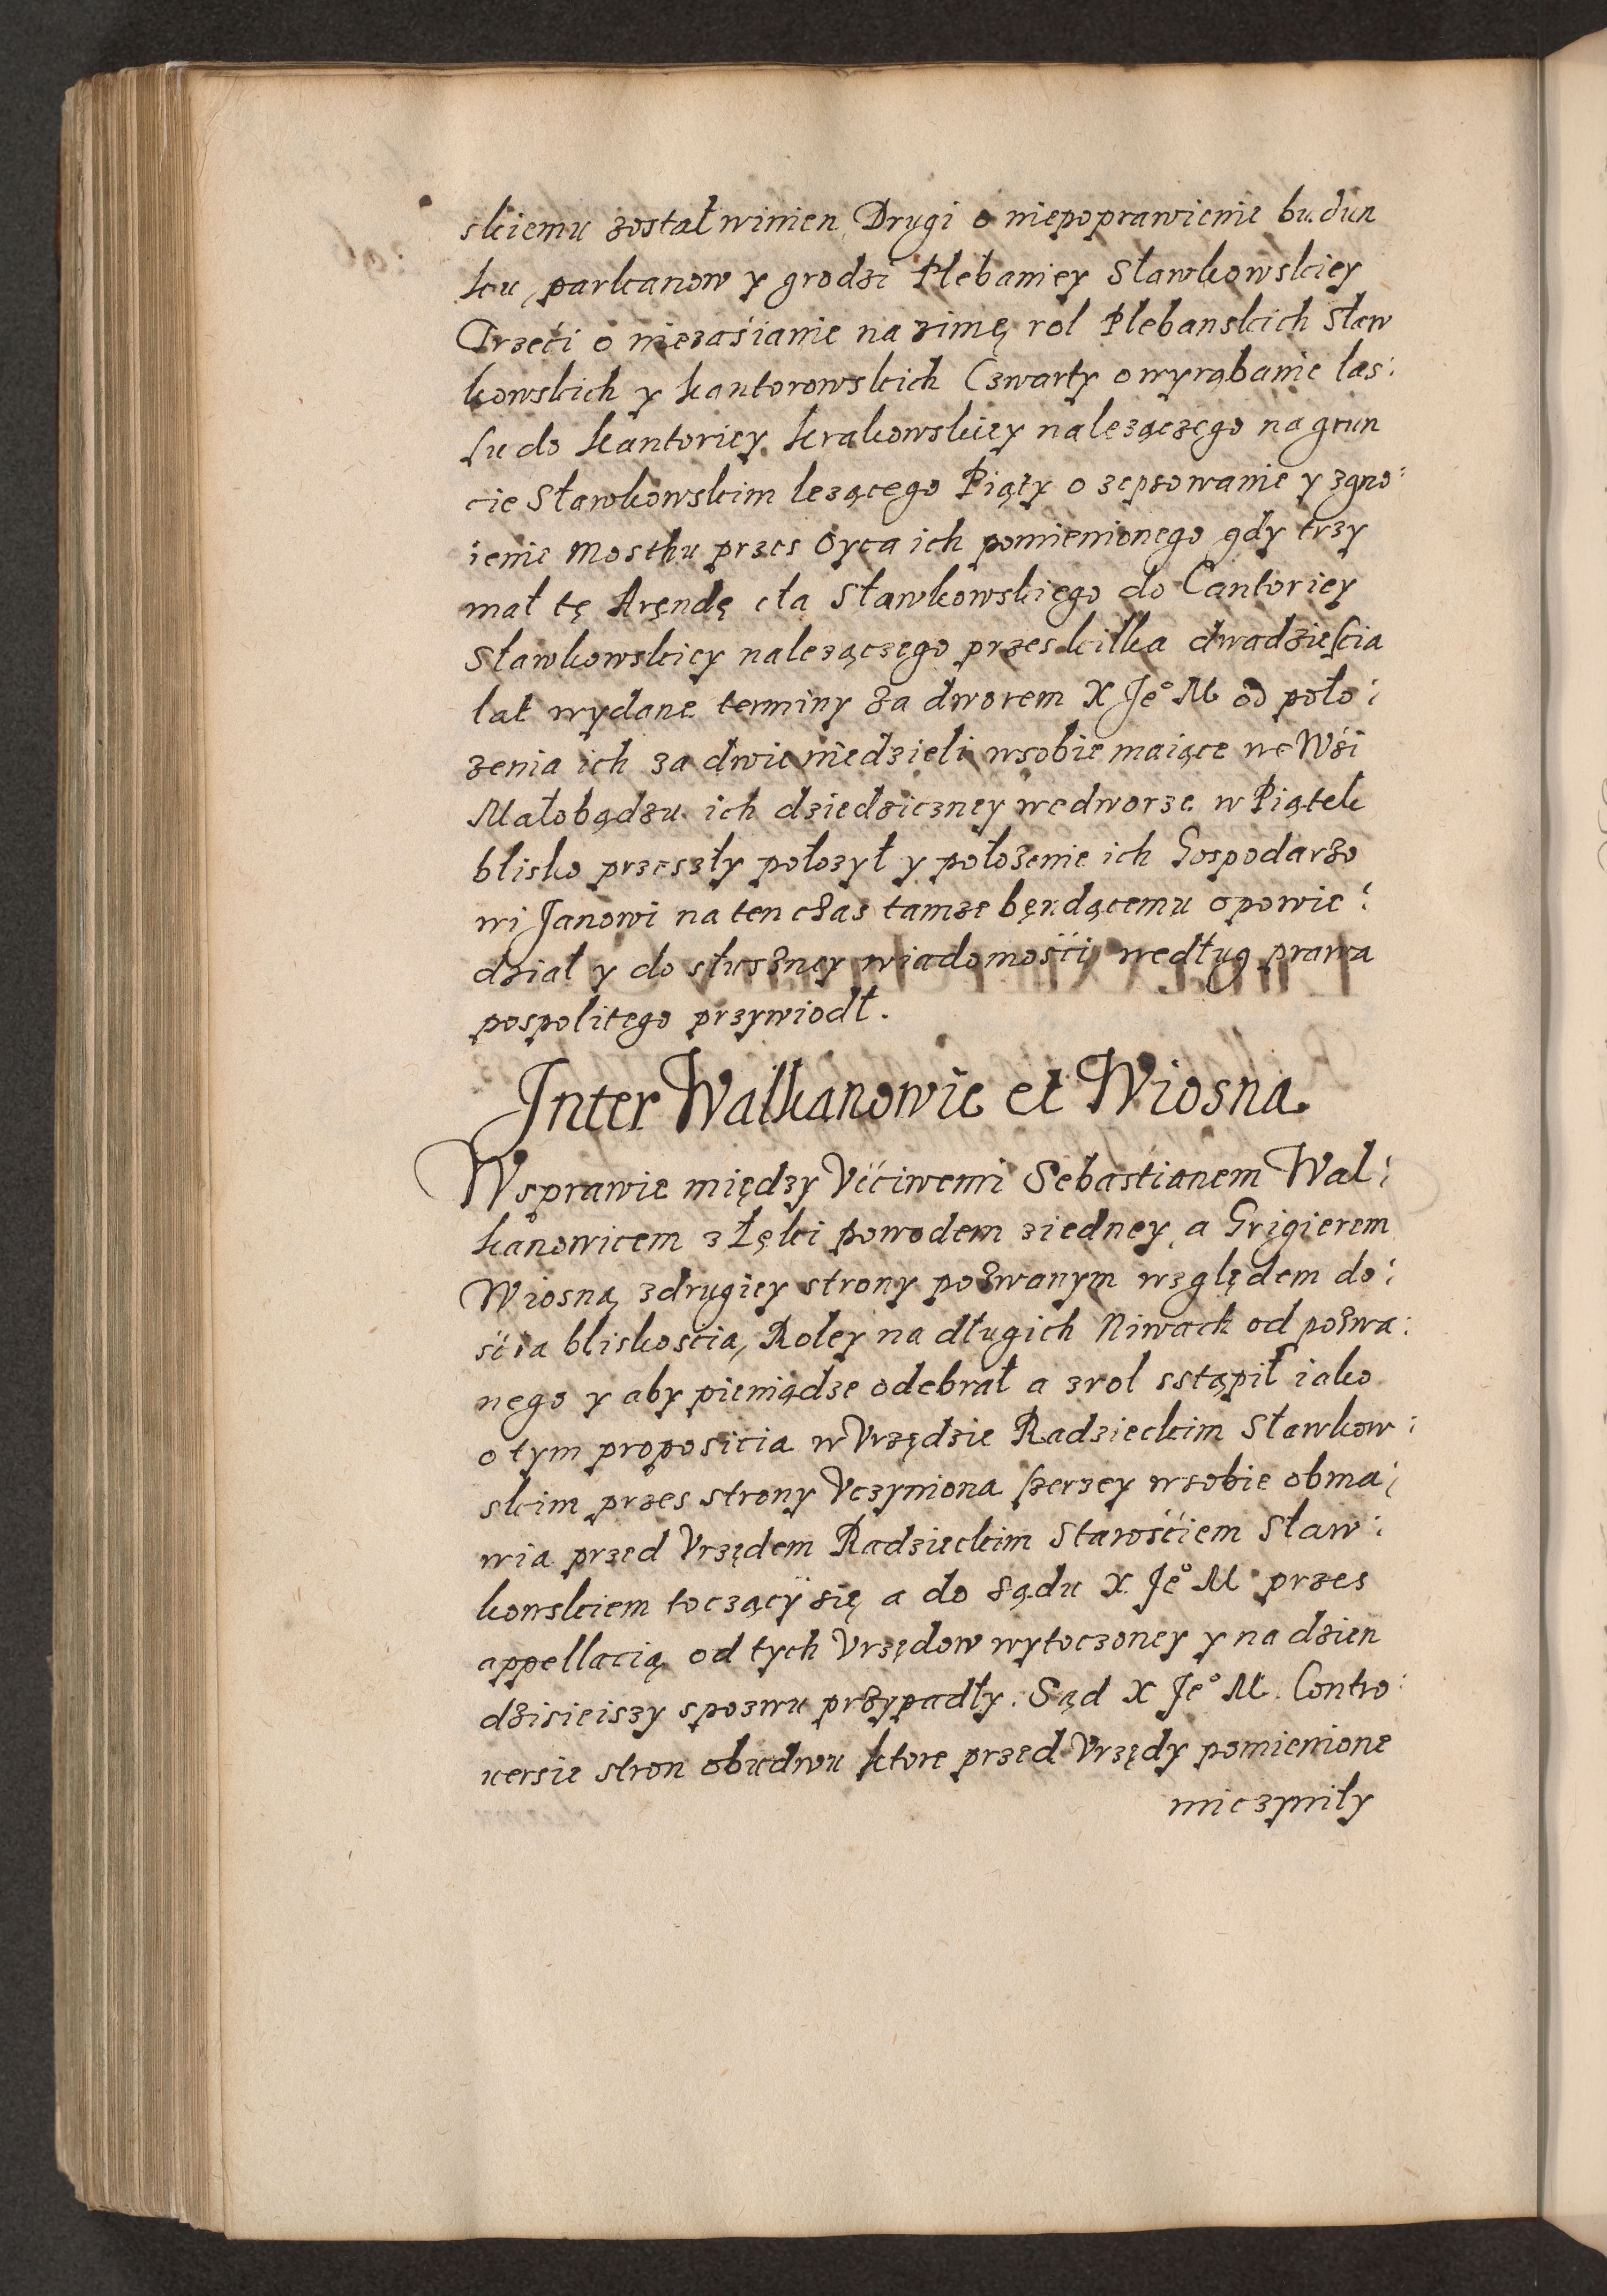 skiemu został winien Drugi o niepoprawienie budun
ku, parkanow y grodzi Plebaniey Sławkowskiey
Trzeći o niezaśianie na zimę rol Plebanskich Sław
kowskich y kantorowskich Czwarty o wyrąbanie las:
su do kantoriey krakowskiey nalezączego na grun
cie Sławkowskim lezącego Piąty o zepsowanie y zgno:
ienie mosthu przes Oyca ich pomienionego gdy trzy
mał tę Aręndę cła Sławkowskiego do Cantoriey
Sławkowskiey nalezączego przes kilka dwadzieścia
lat wydane terminy za dworem X Je° M od poło:
zenia ich za dwie niedzieli wsobie maiące we Wśi
Małobądzu ich dziedziczney wedworze w Piątek
blisko przeszły połozył y położenie ich Gospodarzo
wi Janowi na ten czas tamze będącemu opowie:
dział y do słuszney wiadomośći według prawa
pospolitego przywiodł.
Inter Walkanowic et Wiosna.
Wsprawie między Vćciwemi Sebastianem Wal:
kanowicem z Łęki powodem ziedney, a Grigierem
Wiosną zdrugiey strony pozwanym względem do:
śćia bliskoscia, Roley na długich Niwach od pozwa:
nego y aby pieniądze odebrał a zrol sstąpił iako
o tym proposicia w Vrzędzie Radzieckim Sławkow:
skim przes strony Vczyniona szerzey wsobie obma:
wia przed Vrzędem Radzieckim Starośćiem Sław:
kowskiem toczący się a do sądu X Je° M przes
appellacią od tych Vrzędow wytoczoney y na dzien
dzisieiszy spozwu przypadły. Sąd X Je° M. Contro:
uersie stron obudwu ktore przed Vrzędy pomienione
mi czyniły